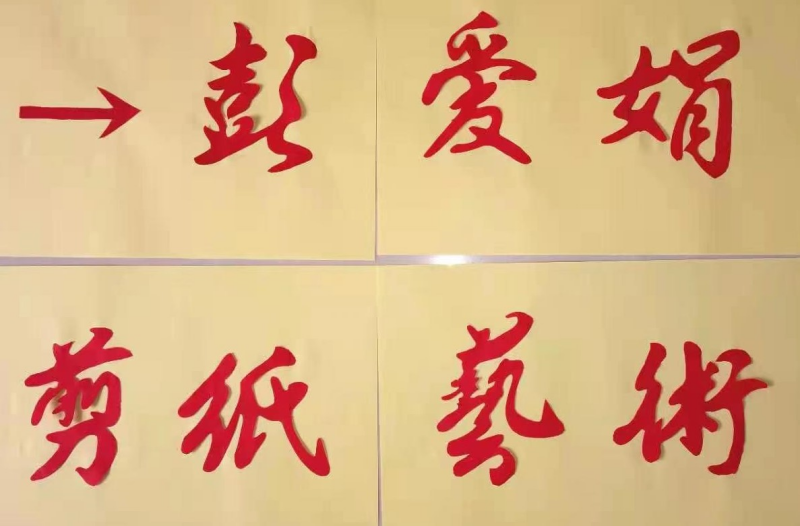 →彭爱娟
剪纸藝術